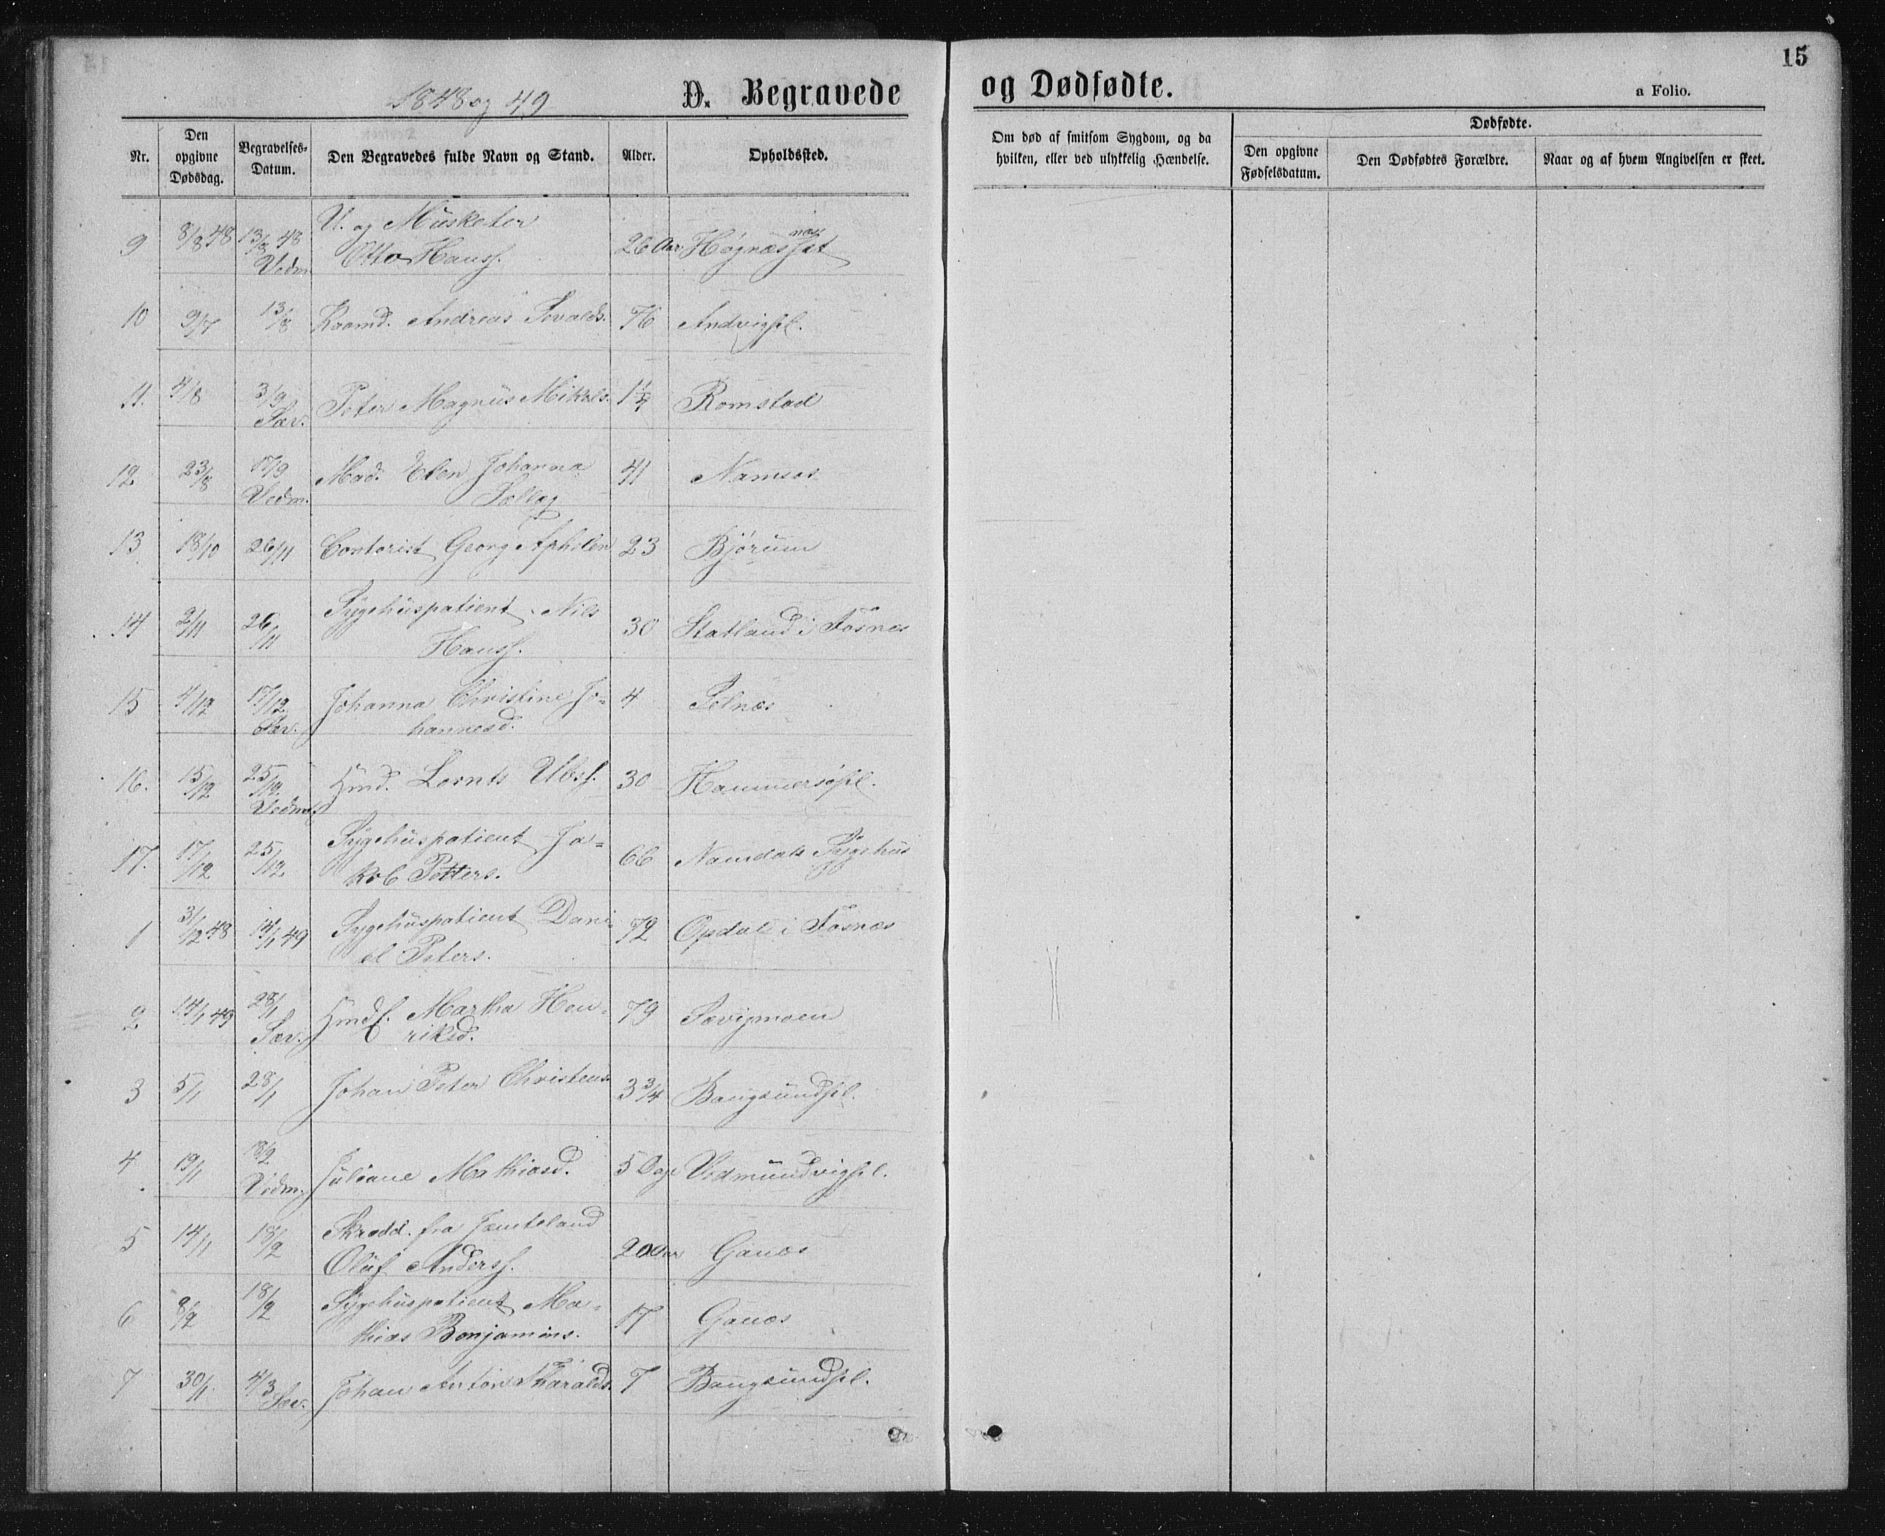 15
1848 og 49
D. Begravede og Dødfødte.
a Folio.
Nr.
Den opgivne Dødsdag.
Begravelses-Datum.
Den Begravedes fulde Navn og Stand.
Alder.
Opholdssted.
Om død af smitsom Sygdom, og da hvilken, eller ved ulykkelig Hændelse.
Dødfødte.
Den opgivne Fødselsdatum.
Den Dødfødtes Forældre.
Naar og af hvem Angivelsen er skeet.
U. og Musketer
9 8/8 48 13/8 48 Otto Hanss. 26 Aar
Vedm.
10 9/7 13/8 Andreas 76 Andvigpl.
11. 4/8 3/9 Peter Magnus Mikals. 1 1/4 Romstad
Sæv.
12. 23/8 17/9 Mad. Elen Johanna 41 Namsos
Vedm.
13 18/10 26/11 Contorist Georg 23 Bjørum
14 2/11 26/11 Sygehuspatient Nils 30 Statland i Fosnes
Hanss.
15 4/12 17/12 Johanna Christine Jo- 4 Selnæs
Sæv. hannesd.
16. 15/12 25/12 Hmd. Lornts 30 Hammersøpl.
Vedm.
17. 17/12 25/12 Sygehuspatient Ja- 66 Namdals Sygehus
kob Petters.
1 31/12 48 14/1 49 Sygehuspatient Dani- 72 Opdal i Fosnes
el Peters.
2 14/1 49 28/1 Martha Hen- 79 Sævigmoen
Sæv. riksd.
3 5/1 28/1 Johan Peter Christens. 3 3/4 Bangsundpl.
4 19/1 18/2 Juliane Mathiasd. 5 Dage Vedmundvigpl.
Vedm.
5 14/1 18/2 Skrædd. fra Jemteland 20 Aar Ganæs
Oluf Anderss.
6 8/2 18/2 Sygehuspatient Ma- 17 Ganæs
thias Benjamins.
7 30/1 4/3 Johan Anton Haralds. 7 Bangsundpl.
Sæv.